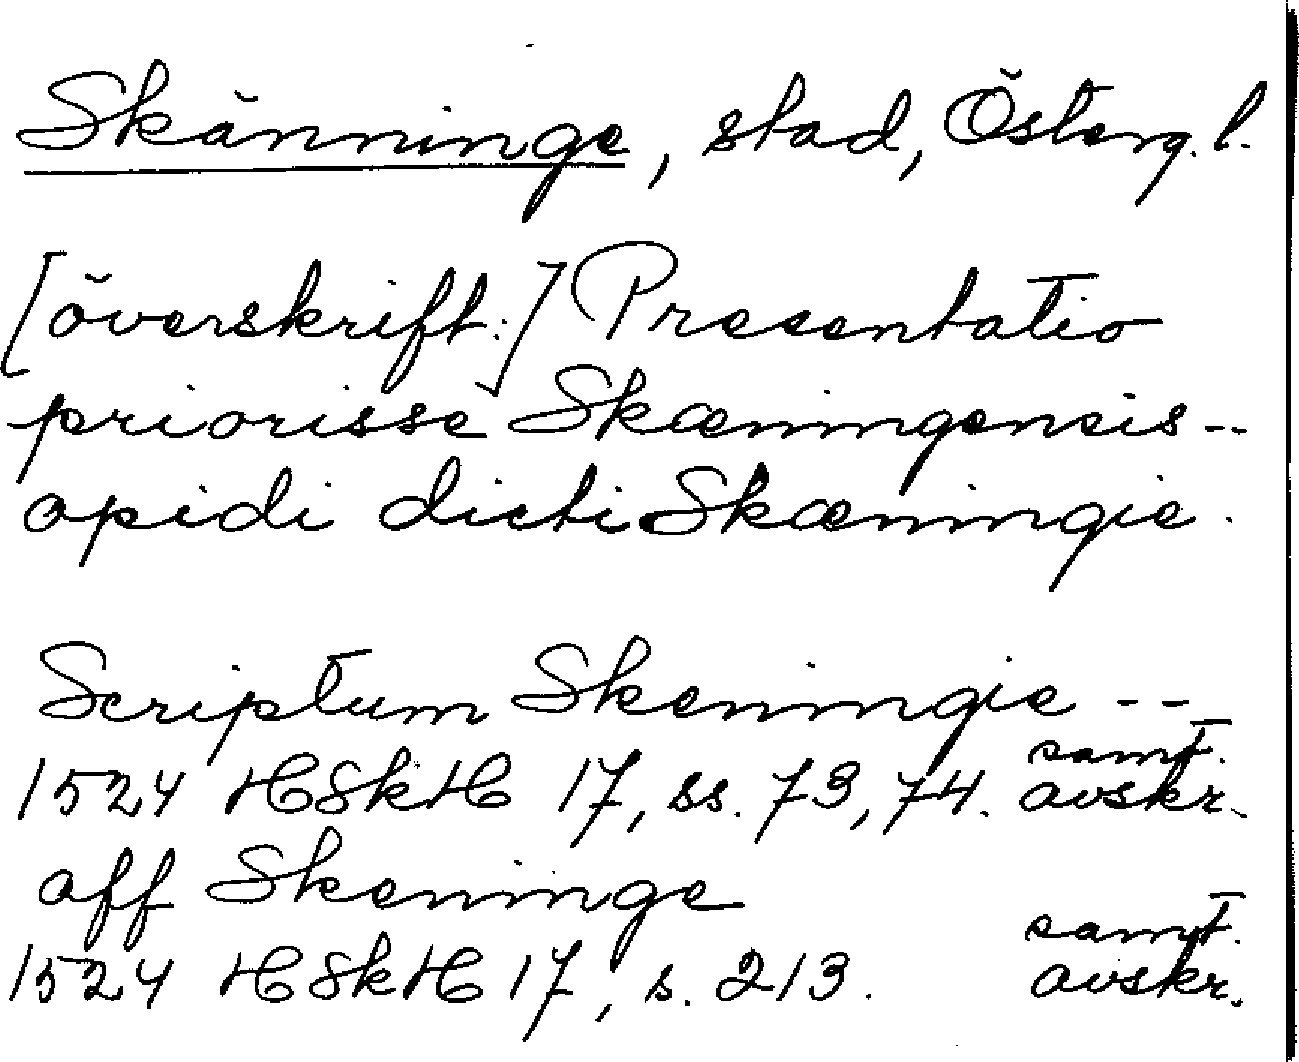 Skänninge, stad, Österg. l.
[överskrift:] Presentatio
priorisse Skæningensis --
opidi dicti Skæningie.
Scriptum Skeningie --
1524 HSkH 17, ss. 73, 74. samt. avskr.
aff Skeninge
1524 HSkH 17, s. 213. samt. avskr.